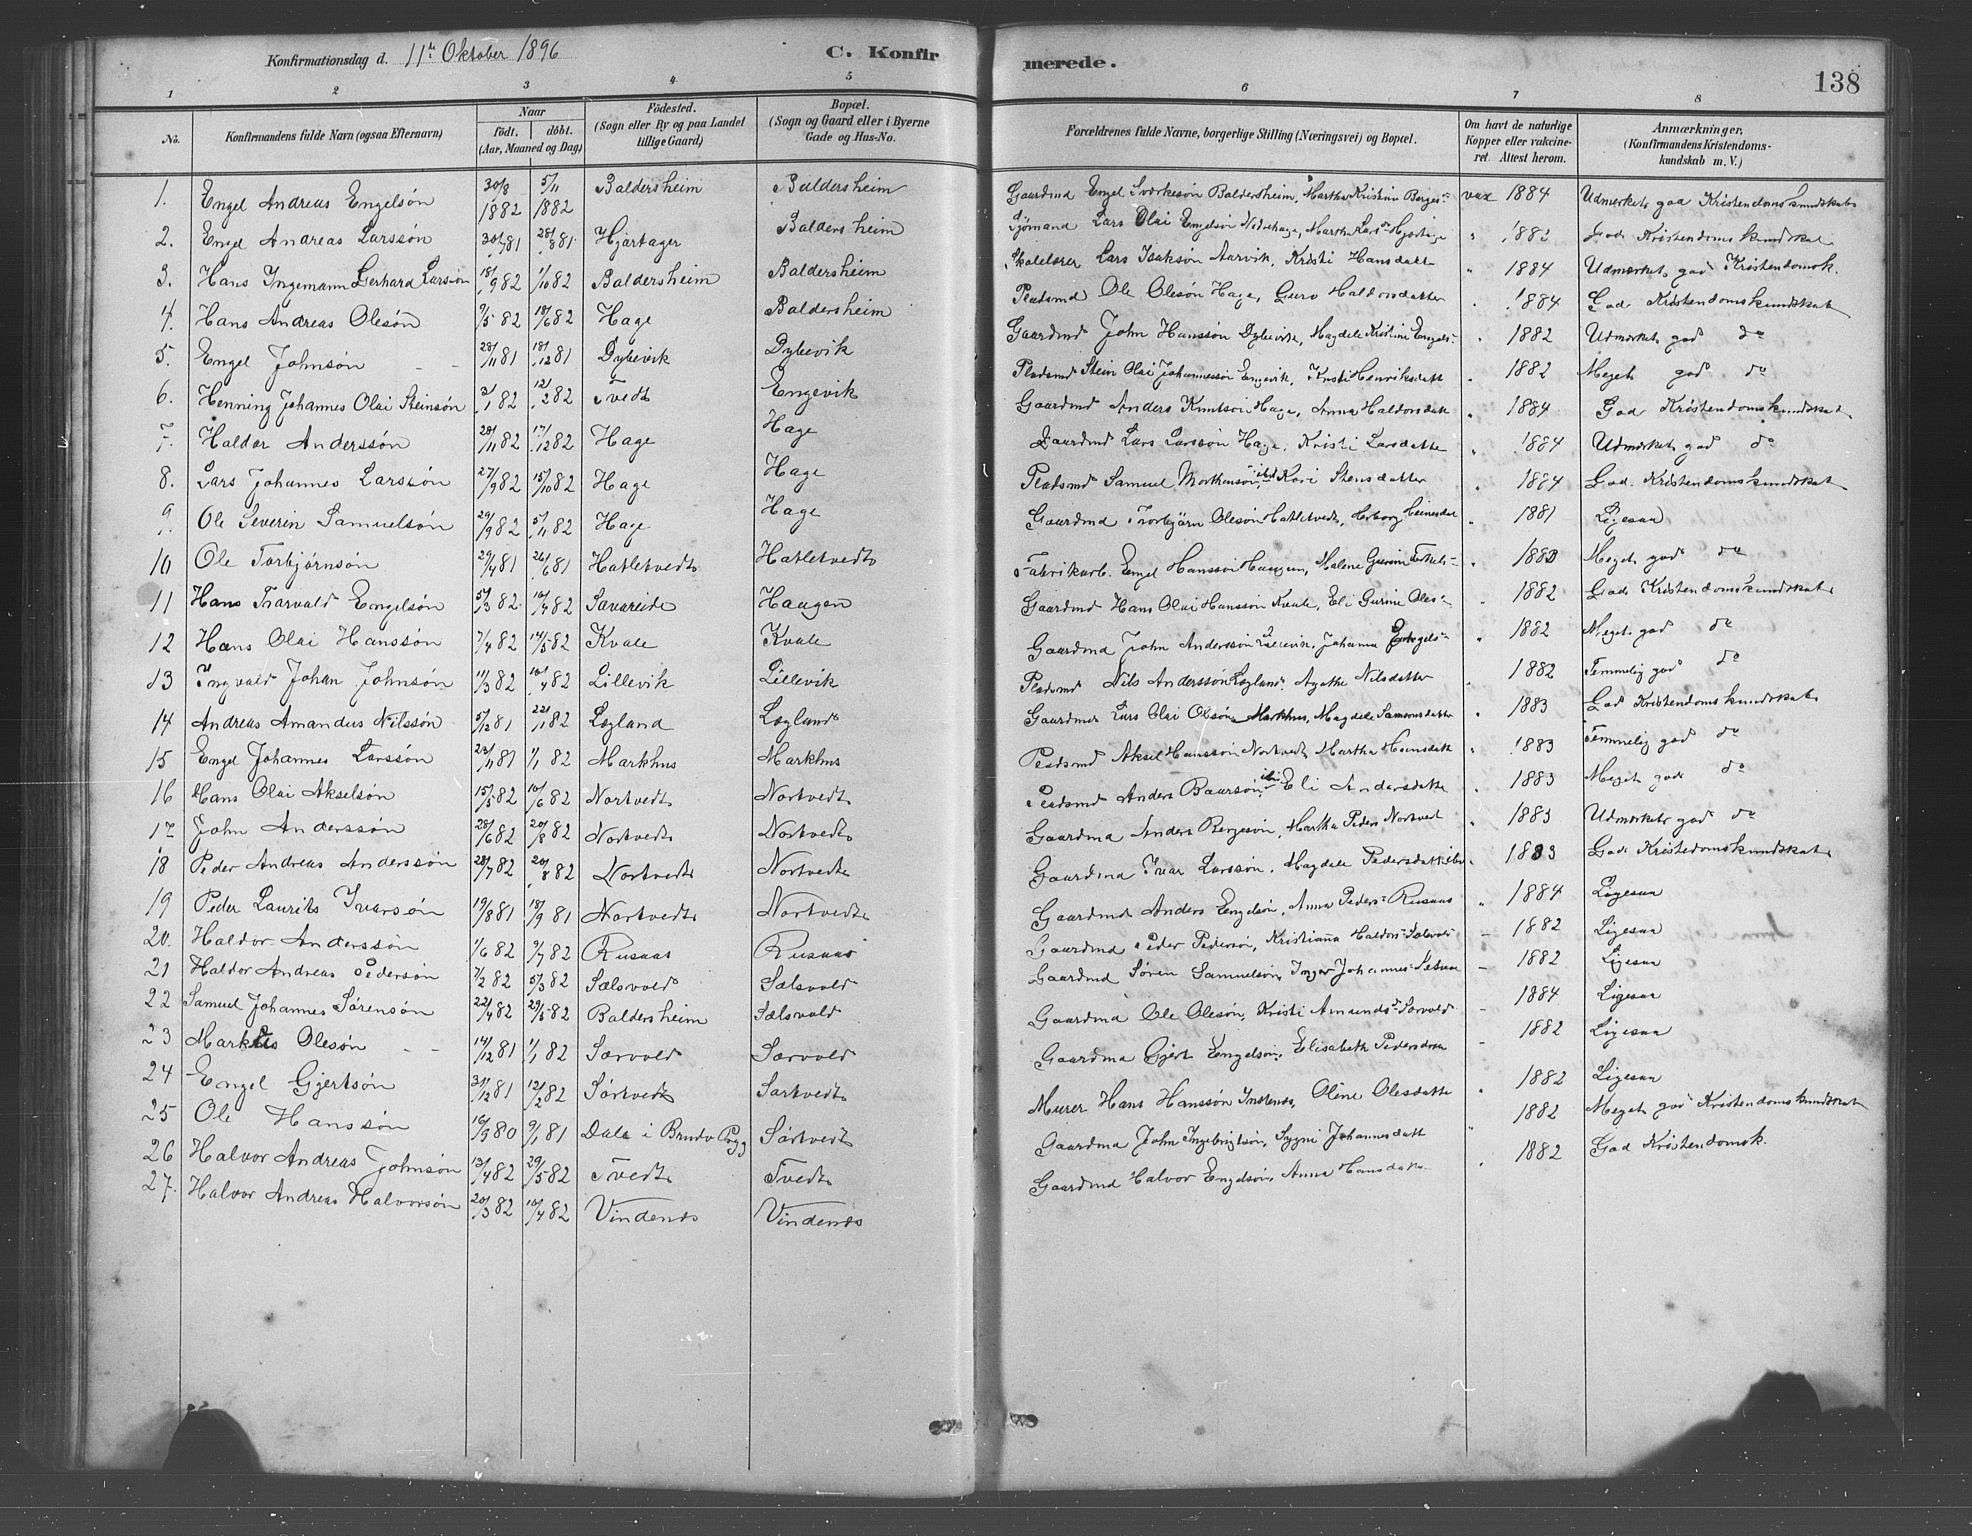 Konfirmationsdag d. 11te Oktober 1896
C. Konfirmerede.
138
1 2 3 4 5 6 7 8
No. | Konfirmandens fulde Navn (ogsaa Efternavn) | Naar født. døbt. (Aar, Maaned og Dag) | Fødested. (Sogn eller By og paa Landet tillige Gaard) | Bopæl. (Sogn og Gaard eller i Byerne Gade og Hus-No. | Forældrenes fulde Navne, borgerlige Stilling (Næringsvei) og Bopæl. | Om havt de naturlige Kopper eller vakcineret. Attest herom. | Anmærkninger, (Konfirmandens Kristendomskundskab m. V.)
1. Engel Andreas Engelsøn 30/8 1882 5/11 1882 Baldersheim Baldersheim Gaardmd Engel Sværkesøn Baldersheim, Martha Kristine Berges- vax 1884 Udmærket god Kristendomskundskab
2. Engel Andreas Larssøn 81 28/8 81 Hjartager Baldersheim Sjømand Lars Olai Engelsøn Martha Lars " 188 God Kristendomskundskab
3. Hans Ingemann Gerhard Larssøn 18/9 82 1/10 82 Baldersheim Baldersheim Skolelærer Lars Isaksøn Aarvik, Kristi Hansdatt " 1884 Udmærket god Kristendomsk.
4. Hans Andreas Olesøn 9/5 82 18/6 82 Hage Baldersheim Pladsmd Ole Olesøn Hage, Guro Haldorsdatter " 1884 God Kristendomskundskab
5. Engel Johnsøn - - 28/11 81 18/12 81 Dybevik Dybevik Gaardmd John Hanssøn Dybevik, Magdele Kristine Engels- " 1882 Udmærket god do
6. Henning Johannes Olai Steinsøn 3/1 82 12/2 82 Tvedt Engevik Pladsmd Stein Olai Johannessøn Engevik, Kristi Henriksdatt " 1882 Meget god do
7. Haldor Anderssøn 28/11 82 17/12 82 Hage Hage Gaardmd Anders Knutson Hage, Anna Haldorsdatt " 1884 God Kristendomskundskab
8. Lars Johannes Larssøn 27/9 82 15/10 82 Hage Hage Gaardmd Lars Larssøn Hage, Kristi Larsdatte " 1884 Udmærket god do
9. Ole Severin Samuelsøn 29/9 82 5/11 82 Hage Hage Pladsmd Samuel Morthensøn ibd Kari Stensdatter " 1884 God Kristendomskundskab
10 Ole Torbjørnsøn 29/4 81 26/6 81 Hatletvedt Hatletvedt Gaardmd Torbjørn Olesøn Hatletvedt, Herborg " 1881 Ligesaa
11 Hans Tharvald Engelsøn 5/3 82 16/4 82 Sævareide Haugen Fabrikarb. Engel Hanssøn Haugen, Malene Gurine Torkels- " 188 Meget god do
12 Hans Olai Hanssøn 7/4 82 14/5 82 Kvale Kvale Gaardmd Hans Olai Hanssøn Kvale, Eli Gurine Oles- " 1882 God Kristendomskundskab
13 Ingvald Johan Johnsøn 11/3 82 16/4 82 Lillevik Lillevik Gaardmd John Anderssøn Lillevik, Johanna Engels- " 1882 Meget god do
14 Andreas Amandus Nilssøn 5/12 81 22/1 82 Løgland Løgland Pladsmd Nils Anderssøn Løgland, Agathe Nilsdatter " 1882 Temmelig god do
15 Engel Johannes Larssøn 23/11 81 1/1 82 Markhus Markhus Gaardmd Lars Olai Olsøn Markhus, Magdele Samsonsdatter " 1883 God Kristendomskundskab
16 Hans Olai Akselsøn 15/5 82 10/6 82 Nortvedt Nortvedt Pladsmd Aksel Hanssøn Nortvedt Martha Hansdatt " 1883 Temmelig god do
17 John Anderssøn 28/6 82 20/8 82 Nortvedt Nortvedt Pladsmd Anders Baarsøn ibd Eli Andersdatte " 1883 Meget god do
18 Peder Andreas Anderssøn 28/7 82 20/8 82 Nortvedt Nortvedt Gaardmd Anders Bergesøn, Martha Peders Nortvedt 1883 Udmærket god do
19 Peder Laurits Ivarsøn 19/8 81 18/9 81 Nortvedt Nortvedt Gaardmd Ivar Larssøn, Magdele Pedersdatt ibd 1883 God Kristendomskundskab
20. Haldor Anderssøn 1/6 82 9/7 82 Rusaas Rusaas Gaardmd Anders Engelsøn, Anna Peders- Rusaas " 1884 Ligesaa
21 Haldor Andreas Pedersøn 7/2 82 5/3 82 Sælsvold Sælsvold Gaardmd Peder Pedersøn, Kristianna Haldors- Sælsvold - 1882 Ligesaa
22 Samuel Johannes Sørensøn 22/4 82 29/5 82 Baldersheim Sælsvold Gaardmd Søren Samuelsøn, Inger Johannes- - 1882 Ligesaa
23 Markus Olesøn - - 14/12 81 1/1 82 Sørvold Sørvold Gaardmd Ole Olesøn, Kristi Amunds- Sørvold - 1884 Ligesaa
24 Engel Gjertsøn 31/12 81 12/2 82 Sørtvedt Sørtvedt Gaardmd Gjert Engelsøn, Elisabeth Pedersdatt - 1882 Ligesaa
25 Ole Hanssøn 16/9 80 9/1 81 Dale i Bruvo Prgj Sørtvedt Murer Hans Hanssøn Oline Olesdatte " 1882 Ligesaa
26 Halvor Andreas Johnsøn 13/4 82 29/5 82 Tvedt Tvedt Gaardmd John Ingebrigtsøn, Sygni Johannesdatt " 1882 Meget god Kristendomskundskab
27. Halvor Andreas Halvorsøn 20/3 82 10/4 82 Vindenes Vindenes Gaardmd Halvor Engelsøn, Anna Hansdatte " 1882 God Kristendomsk.